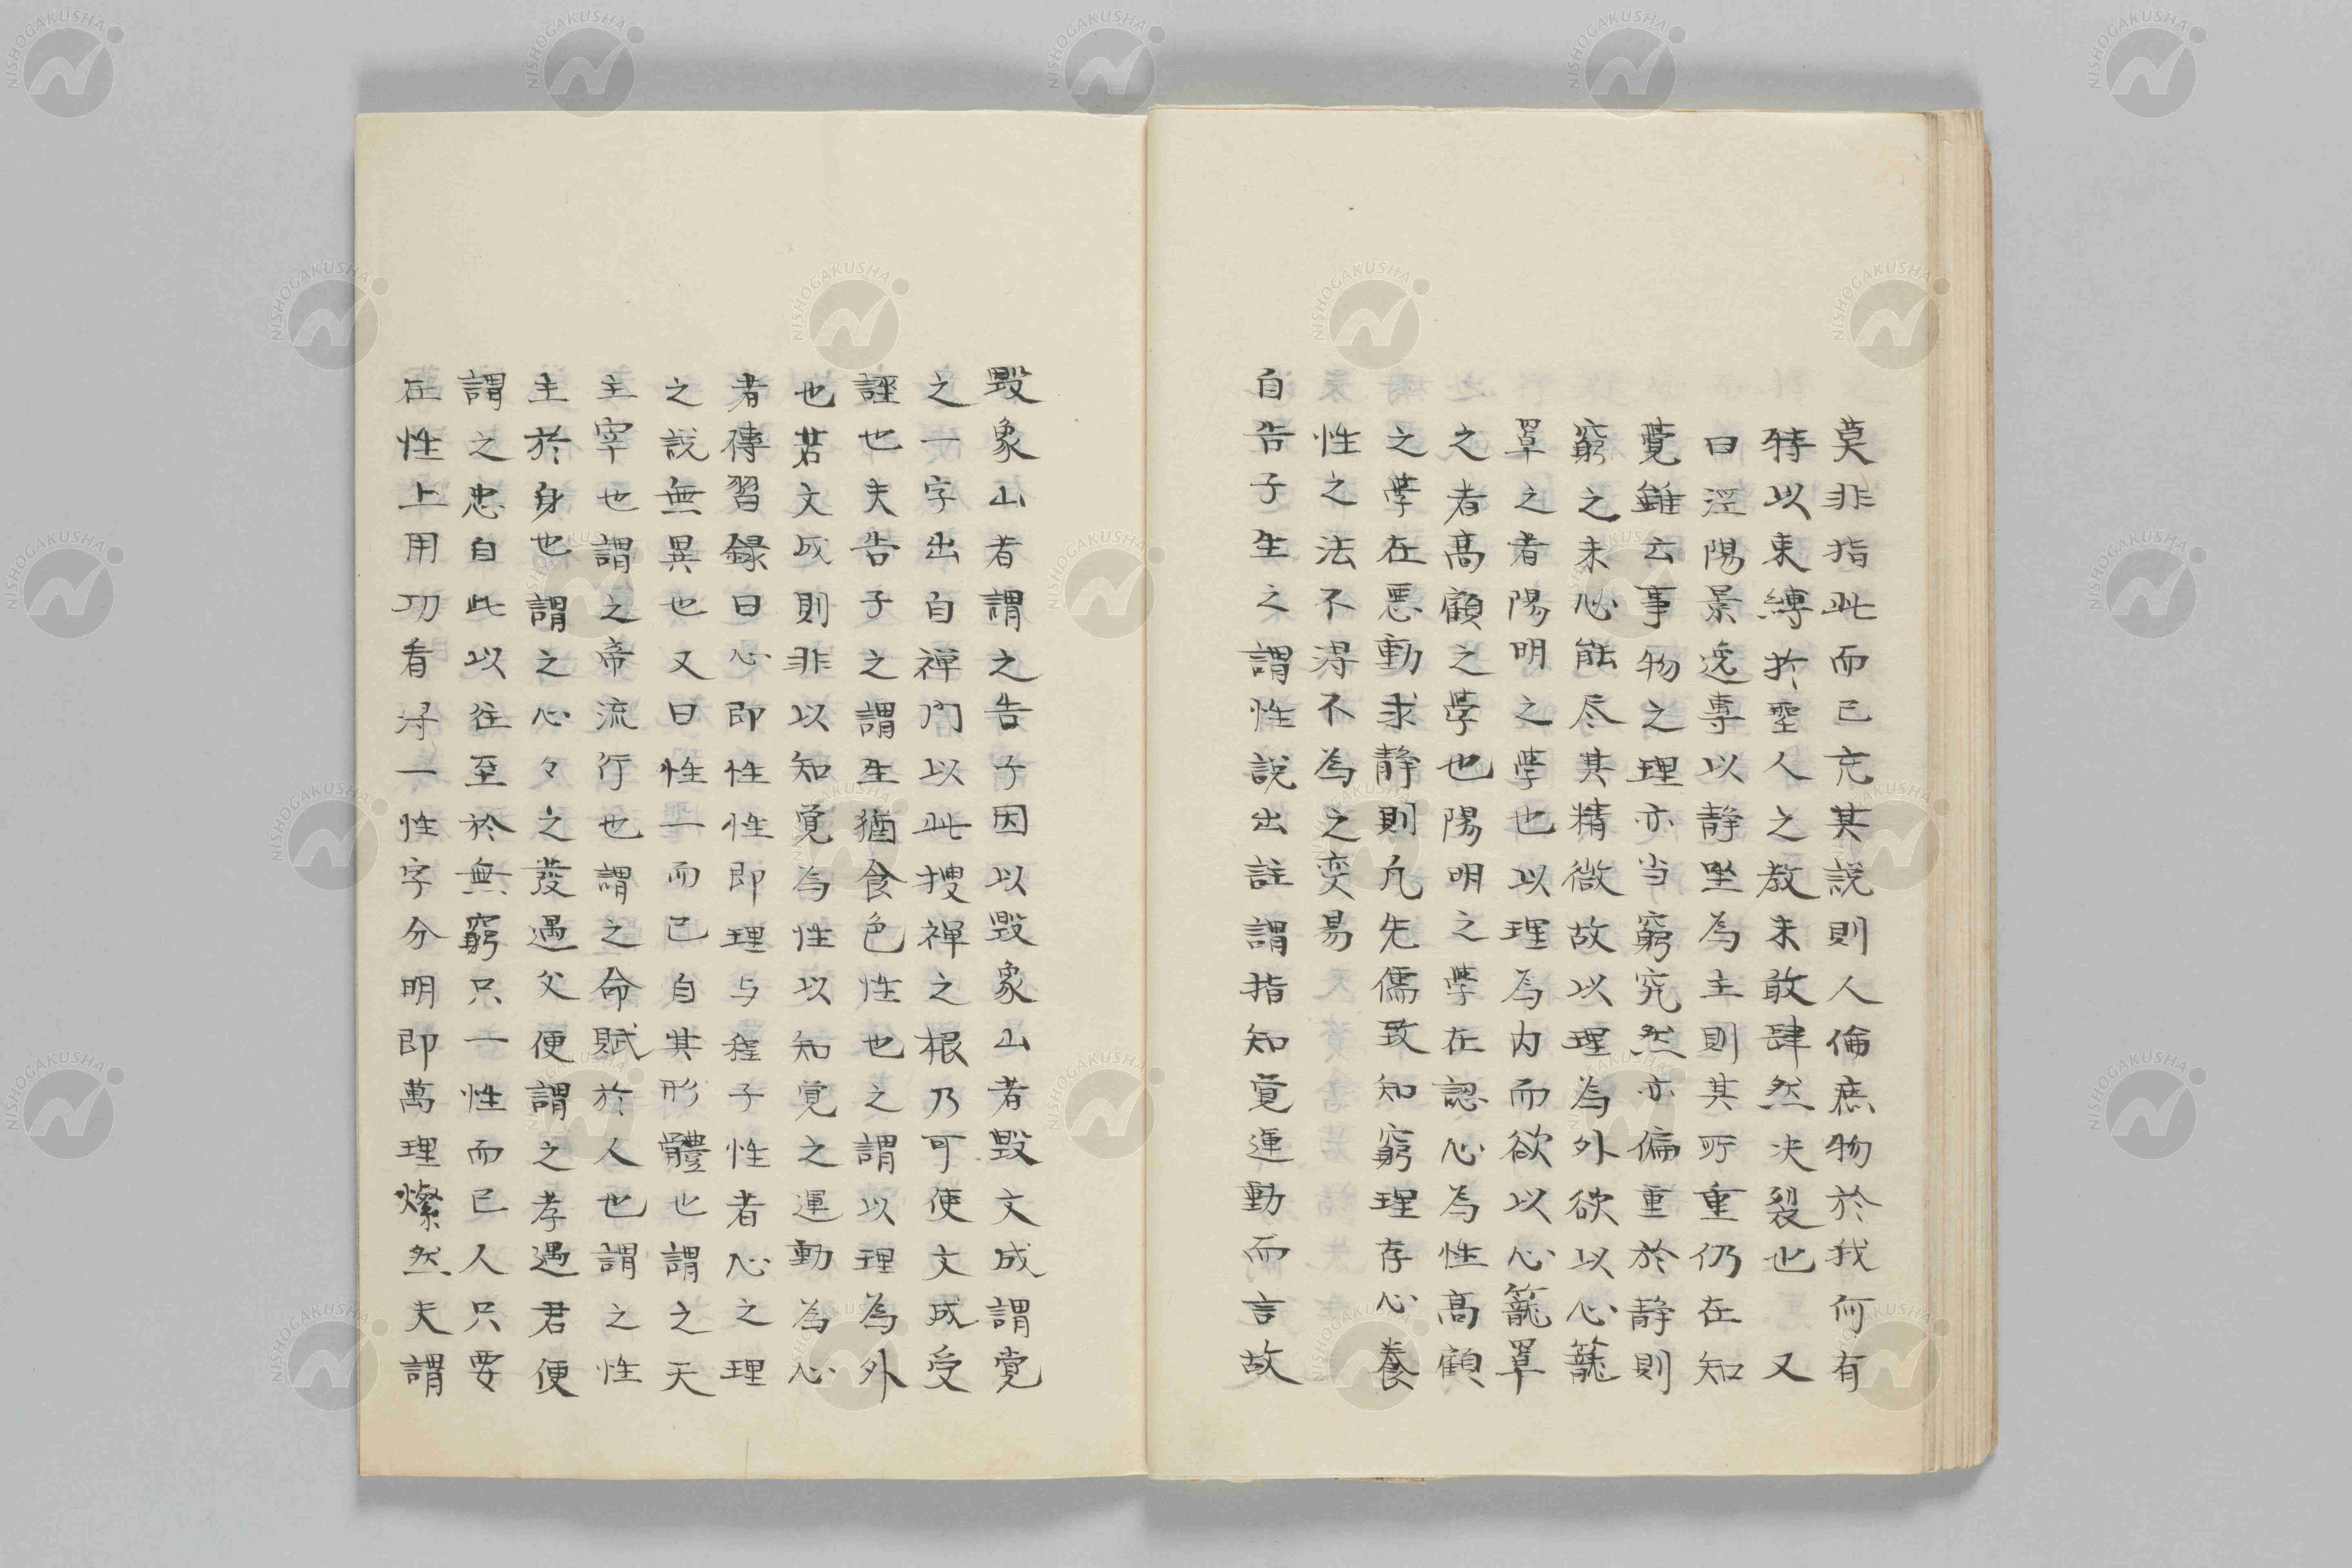 莫非指此而已充其説則人倫庶物於我何有
特以束縛於聖人之教未敢肆然决裂也又
曰涇陽景逸專以静坐為主則其所重仍在知
覺雖云事物之理亦当窮究然亦偏重於静則
窮之未必能尽其精微故以理為外欲以心籠
罩之者陽明之學也以理為内而欲以心籠罩
之者髙顧之學也陽明之學在認心為性髙顧
之學在悪動求静則凡先儒致知窮理存心養
性之法不得不為之变易
自告子生之謂性説出註謂指知覚運動而言故
毀象山者謂之告子因以毀象山者毀文成謂党
之一字出自禅門以此搜禅之根乃可使文成受
誣也夫告子之謂生猶食色性也之謂以理為外
也若文成則非以知覚為性以知覚之運動為心
者傳習録曰心即性性即理与程子性者心之理
之説無異也又曰性一而已自其形體也謂之天
主宰也謂之帝流行也謂之命賦於人也謂之性
主於身也謂之心々之發遇父便謂之孝遇君便
謂之忠自此以往至於無窮只一性而已人只要
在性上用功看得一性字分明即萬理燦然夫謂
NISHOGAKUSHA